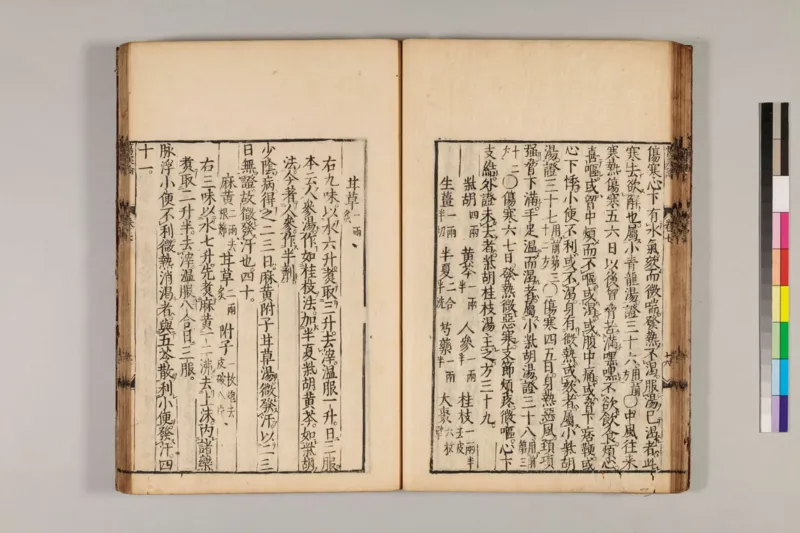 傷寒心下有水氣欬而微喘發熱不渴服湯已渴者此
寒去欲解也屬小青龍湯證三十六用前第三方〇中風往來
寒熱傷寒五六日以後胷脅苦滿嘿嘿不欲飲食煩心
喜嘔或胷中煩而不嘔或渴或腹中痛或脅下痞鞕或
心下悸小便不利或不渴身有微熱或欬者屬小柴胡
湯證三十七用前第三十二方〇傷寒四五日身熱惡風頸項
強脅下滿手足温而渴者屬小柴胡湯證三十八用前第三
十二方〇傷寒六七日發熱微惡寒支節煩疼微嘔心下
支結外證未去者柴胡桂枝湯主之方三十九
柴胡四兩 黃芩一兩半 人參一兩半 桂枝一兩半去皮
生薑一兩半切 半夏二合半洗 芍藥一兩半 大棗六枚擘
甘草一兩炙
右九味以水六升煑取三升去滓温服一升日三服
本云人參湯作如桂枝法加半夏柴胡黃芩如柴胡
法今著人參作半劑
少陰病得之二三日麻黃附子甘草湯微發汗以二三
日無證故微發汗也四十
麻黃二兩去根節 甘草二兩炙 附子一枚炮去皮破八片
右三味以水七升先煑麻黃一二沸去上沫內諸藥
煑取二升半去滓温服八合日三服
脉浮小便不利微熱消渴者與五苓散利小便發汗四
十一